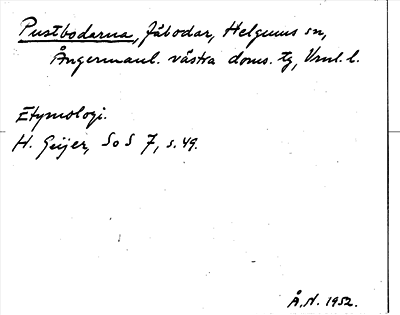 Pustbodarna, fäbodar, Helgums sn,
Ångermanl. västra doms. tg, Vnl. l.
Etymologi.
H. Geijer, SoS 7, s. 49.
Å.N. 1952.